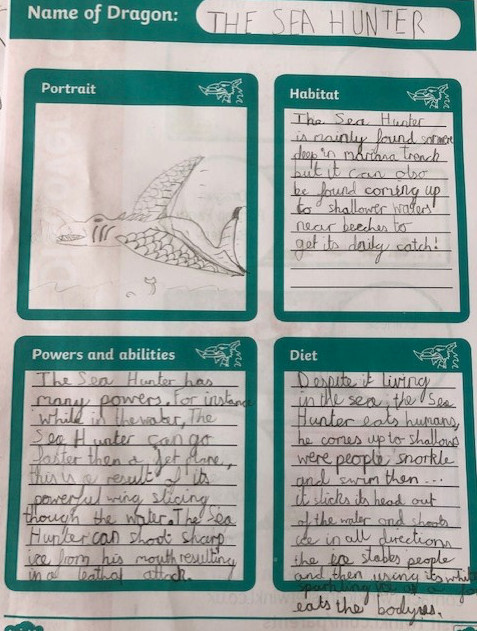 Name of Dragon: THE SEA HUNTER
Portrait
Habitat
The Sea Hunter
is mainly found
deep in mariana trench
but it can also
be found coming up
to shallower waters
near beeches to
get its daily catch!
Powers and abilities
The Sea Hunter has
many powers. For instance
while in the water, The
Sea Hunter can go
faster then a jet plane,
this is a result of its
powerful wing slicing
though the water. The Sea
Hunter can shoot sharp
ice from his mouth resulting
in a leathal attack.
Diet
Despite it living
in the sea, the Sea
Hunter eats humans,
he comes up to shallows
were people snorkle
and swim then...
it sticks its head out
of the water and shoots
ice in all directions
the ice stabes people
and then using its
eats the bodyies.